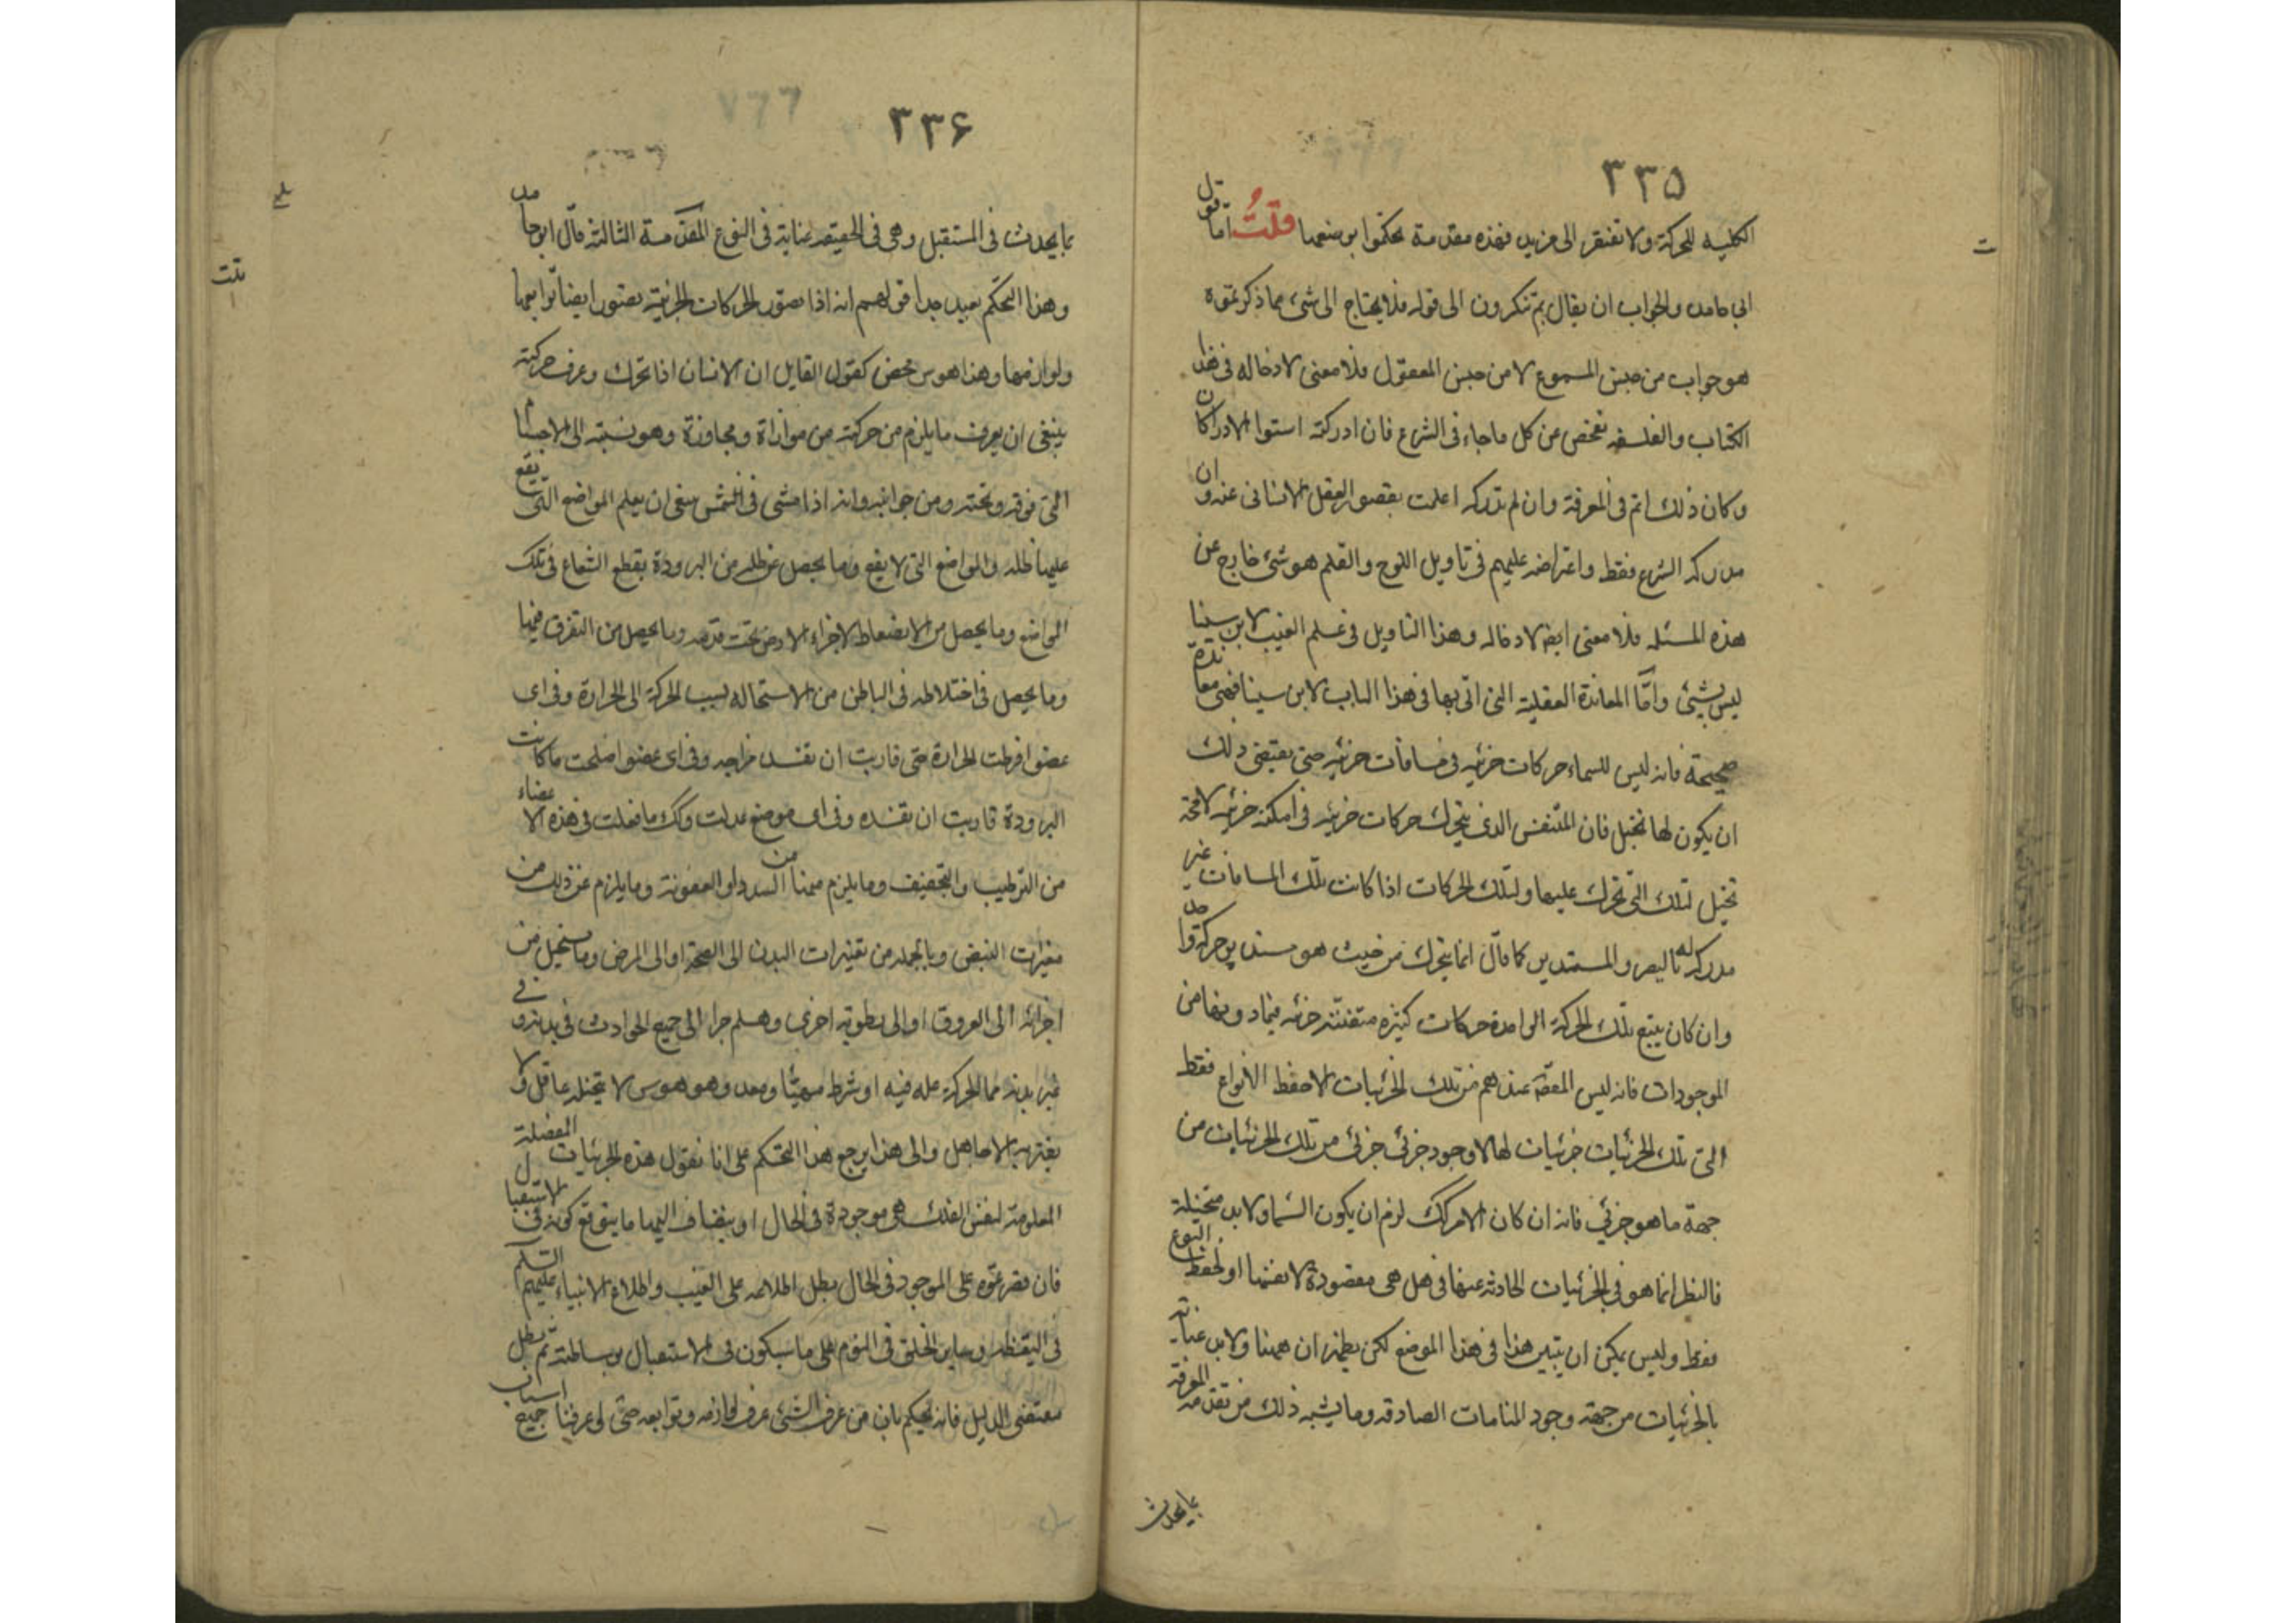 ٣٣٥
الكليه للحركة ولا تفتقر الى مزيد فهذه مقدمة تحكموا بوضعها قلتُ امّا قول
ابي حامد والجواب ان يقال بم تنكرون الى قوله فلا يحتاج الى شئ مما ذكرتموه
هو جواب من جنس المسموع لا من جنس المعقول فلا معنى لادخاله فى هذا
الكتاب والفلسفه تفحص عن كل ما جاء فى الشرع فان ادركته استوا الادراكان
وكان ذلك اتم فى المعرفة وان لم تدركه اعلمت بقصور العقل الانسانى عنه وان
مدركه الشرع فقط واعتراضه عليهم فى تاويل اللوح والقلم هو شئ خارج عن
هذه المسئله فلا معنى ايضا لادخاله وهذا التاويل فى علم الغيب لابن سينا
ليس بشئ وامّا المعاندة العقلية التى اتى بها فى هذا الباب لابن سينا فهى معاندة
صحيحة فانه ليس للسماء حركات جزئيه فى مسافات جزئيه حتى يقتضى ذلك
ان يكون لها تخيل فان المتنفس الذى يتحرك حركات جزئيه فى امكنة جزئيه لا محة
تخيل لتلك التى تحرك عليها ولتلك الحركات اذا كانت تلك المسافات غير
مدركه له بالبصر والمستدير كما قال انما يتحرك من حيث هو مستدير حركة واحد
وان كان يتبع تلك الحركة الواحدة حركات كثيره متفننه جزئيه فيما دونها من
الموجودات فانه ليس المقصد عندهم من تلك الجزئيات الا حفظ الانواع فقط
التى تلك الجزئيات جزئيات لها لا وجود جزئى جزئى من تلك الجزئيات من
جهة ما هو جزئي فانه ان كان الامر كك لزم ان يكون السما ولا بد متخيلة
فالنظر انما هو فى الجزئيات الحادثه عنها فى هل هى مقصودة لانفسها او لحفظ النوع
فقط وليس يمكن ان يتبين هذا فى هذا الموضع لكن يظهر ان ههنا ولا بد عناية
بالجزئيات من جهة وجود المنامات الصادقه وما يشبه ذلك من تقدمه المعرفة
بما يحدث
٣٣۶
٧٦٦
بما يحدث فى المستقبل وهى فى الحقيقه عناية فى النوع المقدّمة الثالثة قال ابو حامد
وهذا التحكم بعيد جدا قولهم انه اذا تصور الحركات الجزئية تصور ايضا توابعها
ولوازمها وهذا هوس محض كقول القايل ان الانسان اذا تحرك وعرف حركته
ينبغى ان يعرف ما يلزم من حركته من موازاة ومجاوزة وهو نسبته الى الاجسام
التى فوقه وتحته ومن جوانبه وانه اذا مشى فى الشمس ينبغى ان يعلم المواضع التى يقع
عليها ظله والمواضع التى لا يقع وما يحصل من ظله من البرودة بقطع الشعاع فى تلك
المواضع وما يحصل من الانضغاط لاجزاء الارض تحت قدمه وما يحصل من التفرق فيها
وما يحصل فى اختلاطه فى الباطن من الاستحاله بسبب الحركة الى الحرارة وفى اى
عضو افرطت الحرارة حتى قاربت ان تفسد مزاجه وفى اى عضو اصلحت ما كانت
البرودة قاربت ان تفسده وفى اى موضع عدلت وكك ما فعلت فى هذه الاعضاء
من الترطيب والتجفيف وما يلزم منها من السدد او العفونة وما يلزم عن ذلك من
مغيرات النبض وبالجمله من تغيرات البدن الى الصحة او الى المرض وما يستحيل من
اجزائه الى العروق او الى رطوبة اخرى وهلم جرا الى جميع الحوادث فى بدنه وفى
غير بدنه مما الحركة عله فيه او شرط مهيّئا ومعد وهو هوس لا يتخيله عاقل ولا
يغتر به الا جاهل والى هذا يرجع هذا التحكم على انا نقول هذه الجزئيات المفصلة
المعلومة لنفس الفلك هى موجودة فى الحال او ينضاف اليها ما يتوقع كونه فى الاستقبال
فان قصرتموه على الموجود فى الحال بطل اطلاعه على الغيب واطلاع الانبياء عليهم السّلم
فى اليقظه وساير الخلق فى النوم على ما سيكون فى الاستقبال بوساطته ثم بطل
مقتضى الدليل فانه تحكم بان من عرف الشئ عرف لوازمه وتوابعه حتى لو عرفنا جميع اسباب